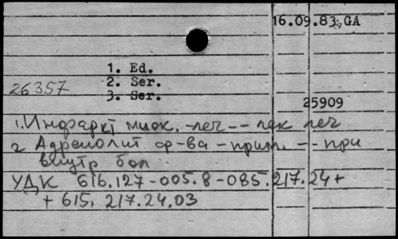 16.09.83,GA
1. Ed.
2. Ser.
3. Ser.
26357
25909
1. Инфаркт миок. -леч -- лек леч
2 Адренолит ср-ва - прим. -- при
внутр бол
УДК 616.127-005.8-085.217.24+
+ 615.217.24.03